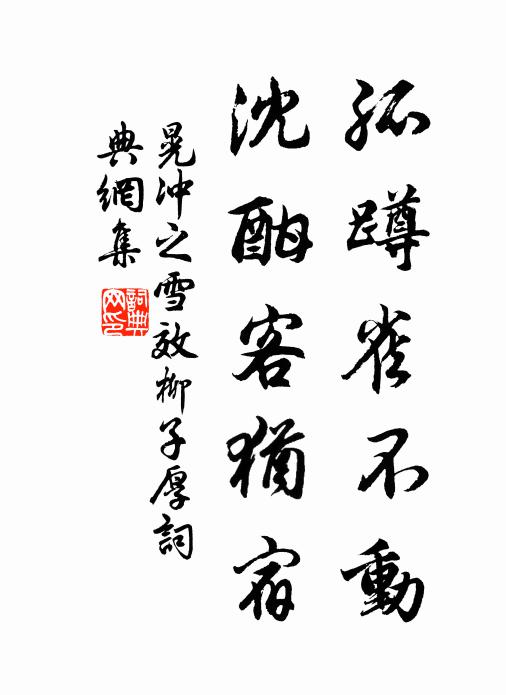 孤蹲雀不動
沈酣客猶宿
晁冲之雪效柳子厚詞
典網集
詞典
网印